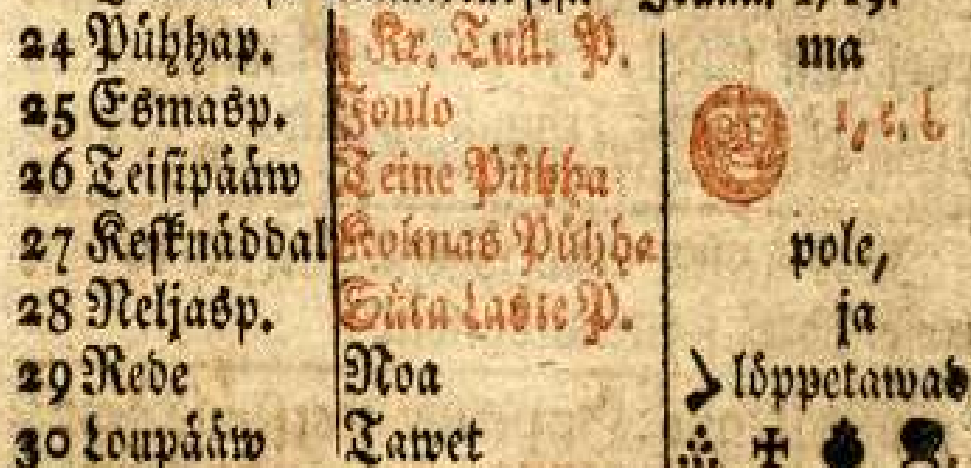 24 Pühhap. 4 Kr. Tull. P. ma
25 Esmasp. Joulo
26 Teisipääw Teine Pühha
27 Kesknäddal Kolmas Pühha pole,
28 Neljasp. Süta Laste P. ja
29 Rede Noa löppetawad
30 Loupääw Tawet